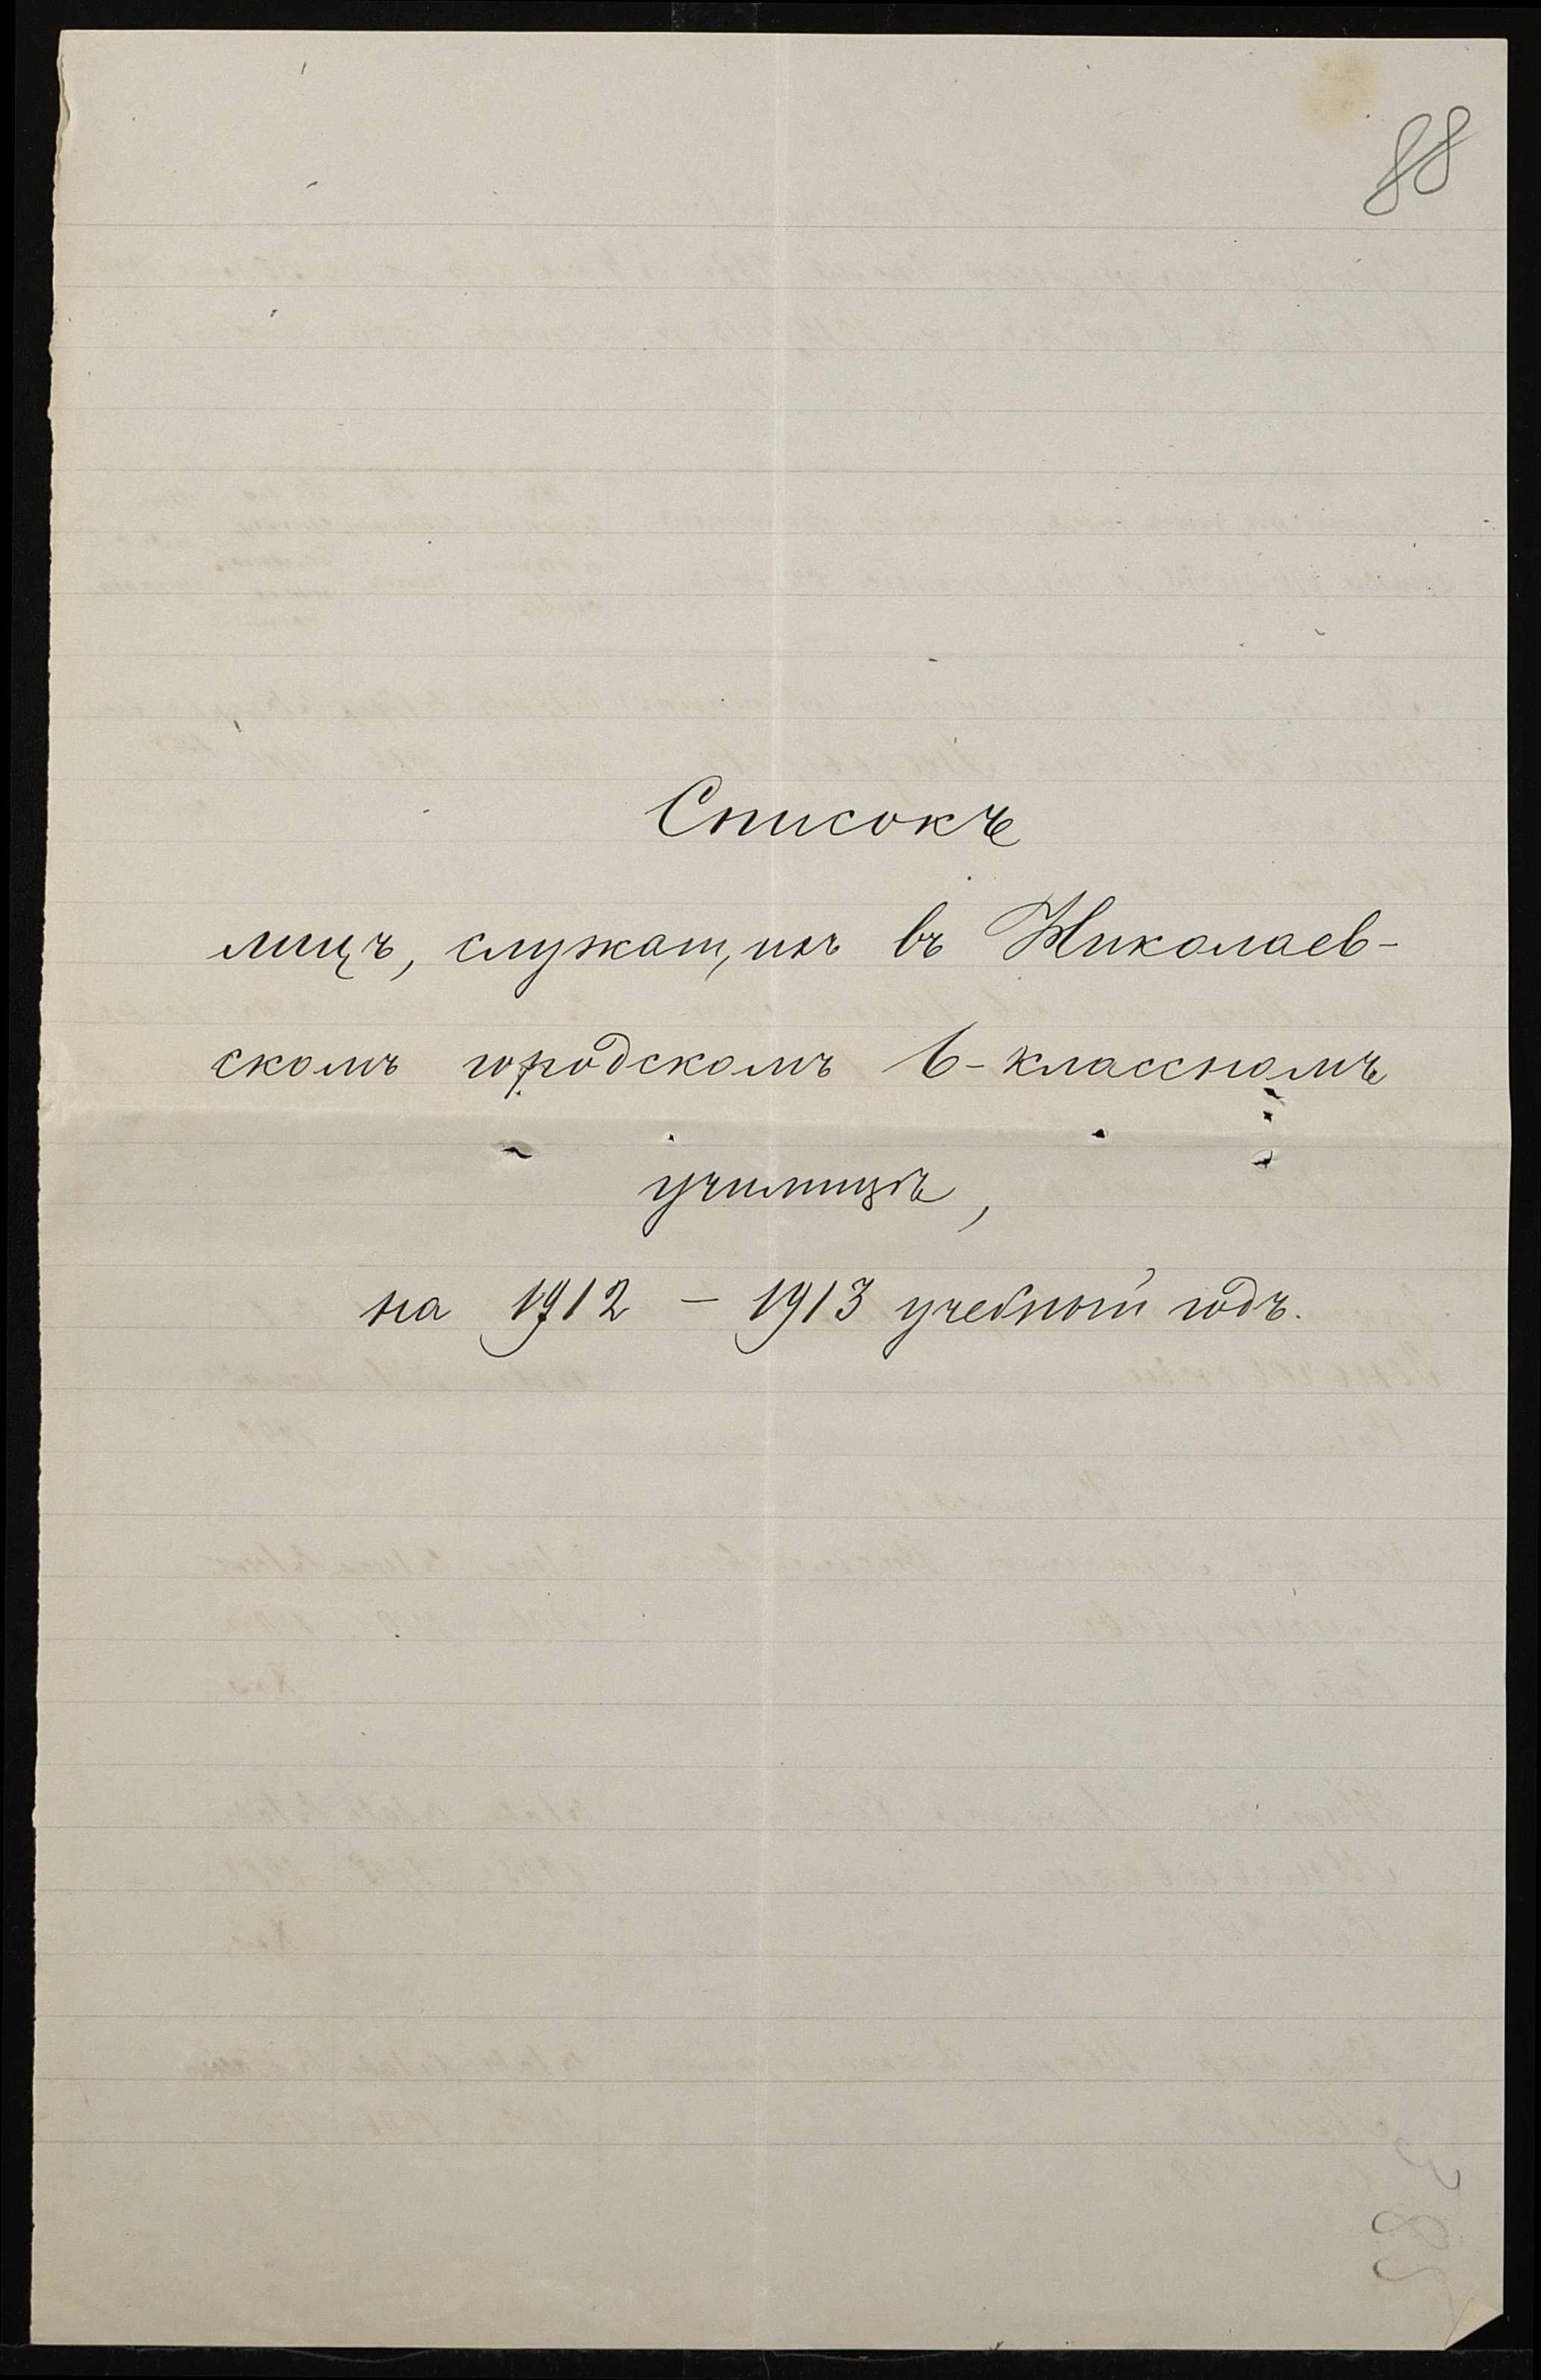 88
Списокъ
лицъ, служащихъ въ Николаев-
скомъ городскомъ 6-классномъ
училищѣ,
на 1912 – 1913 учебный годъ.